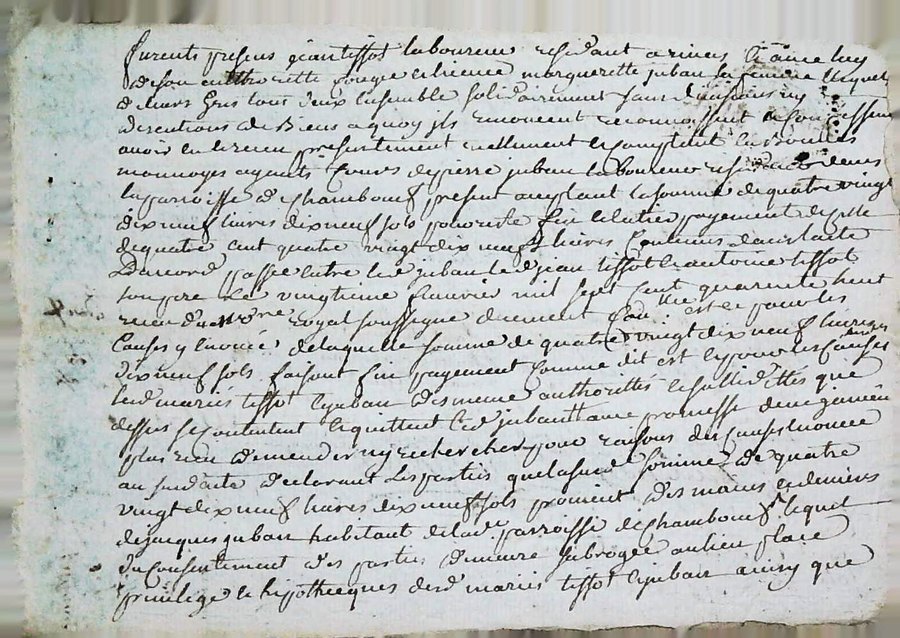 furents presens jean tissot laboureur residant a rines & avec luy
de son authorité congée & licence marguerette juban sa femme lesquels
de leurs gres tous deux ensemble solidairement sans divisions ny
discutions de Biens a quoy ils renoncent reconnoissent & confessent
avoir eu & receu presentement & reellement & comptent en bonnes
monnoyes ayants cours de pierre juban laboureur
la parroisse de chambœuf present acceptant la somme de quatre vingt
dix neuf livres dix neuf sols pour reste fin & entier payement de celle
de quatre cent quatre vingt dix neuf livres contenus dans l'acte
D'accord passé entre led juban led jean tissot & antoine tissot
son pere le vingtieme janvier mil sept cent quarente huit
receu d'un nre royal soussigné duement & pour les
causes y enoncé de laquelle somme de quatre vingt dix neuf livres
dix neuf sols faisant fin payement comme dit est & pour les causes
led mariés tissot & juban desmeme authorittés & sollidittés que
dessus se contentent & quittent led juban avec promesse de ne jamais
plus rien demender ny rechercher pour raisons des causes enoncé
au susd acte declarant les parties que lasusd somme de quatre
vingt dix neuf livres dix neuf sols provient des mains & deniers
de jacques juban habitant de lad parroisse de chambœuf lequel
du consentement des parties demeure subrogée au lieu place
privilege & hipotheques desd mariés tissot & juban ainsy que